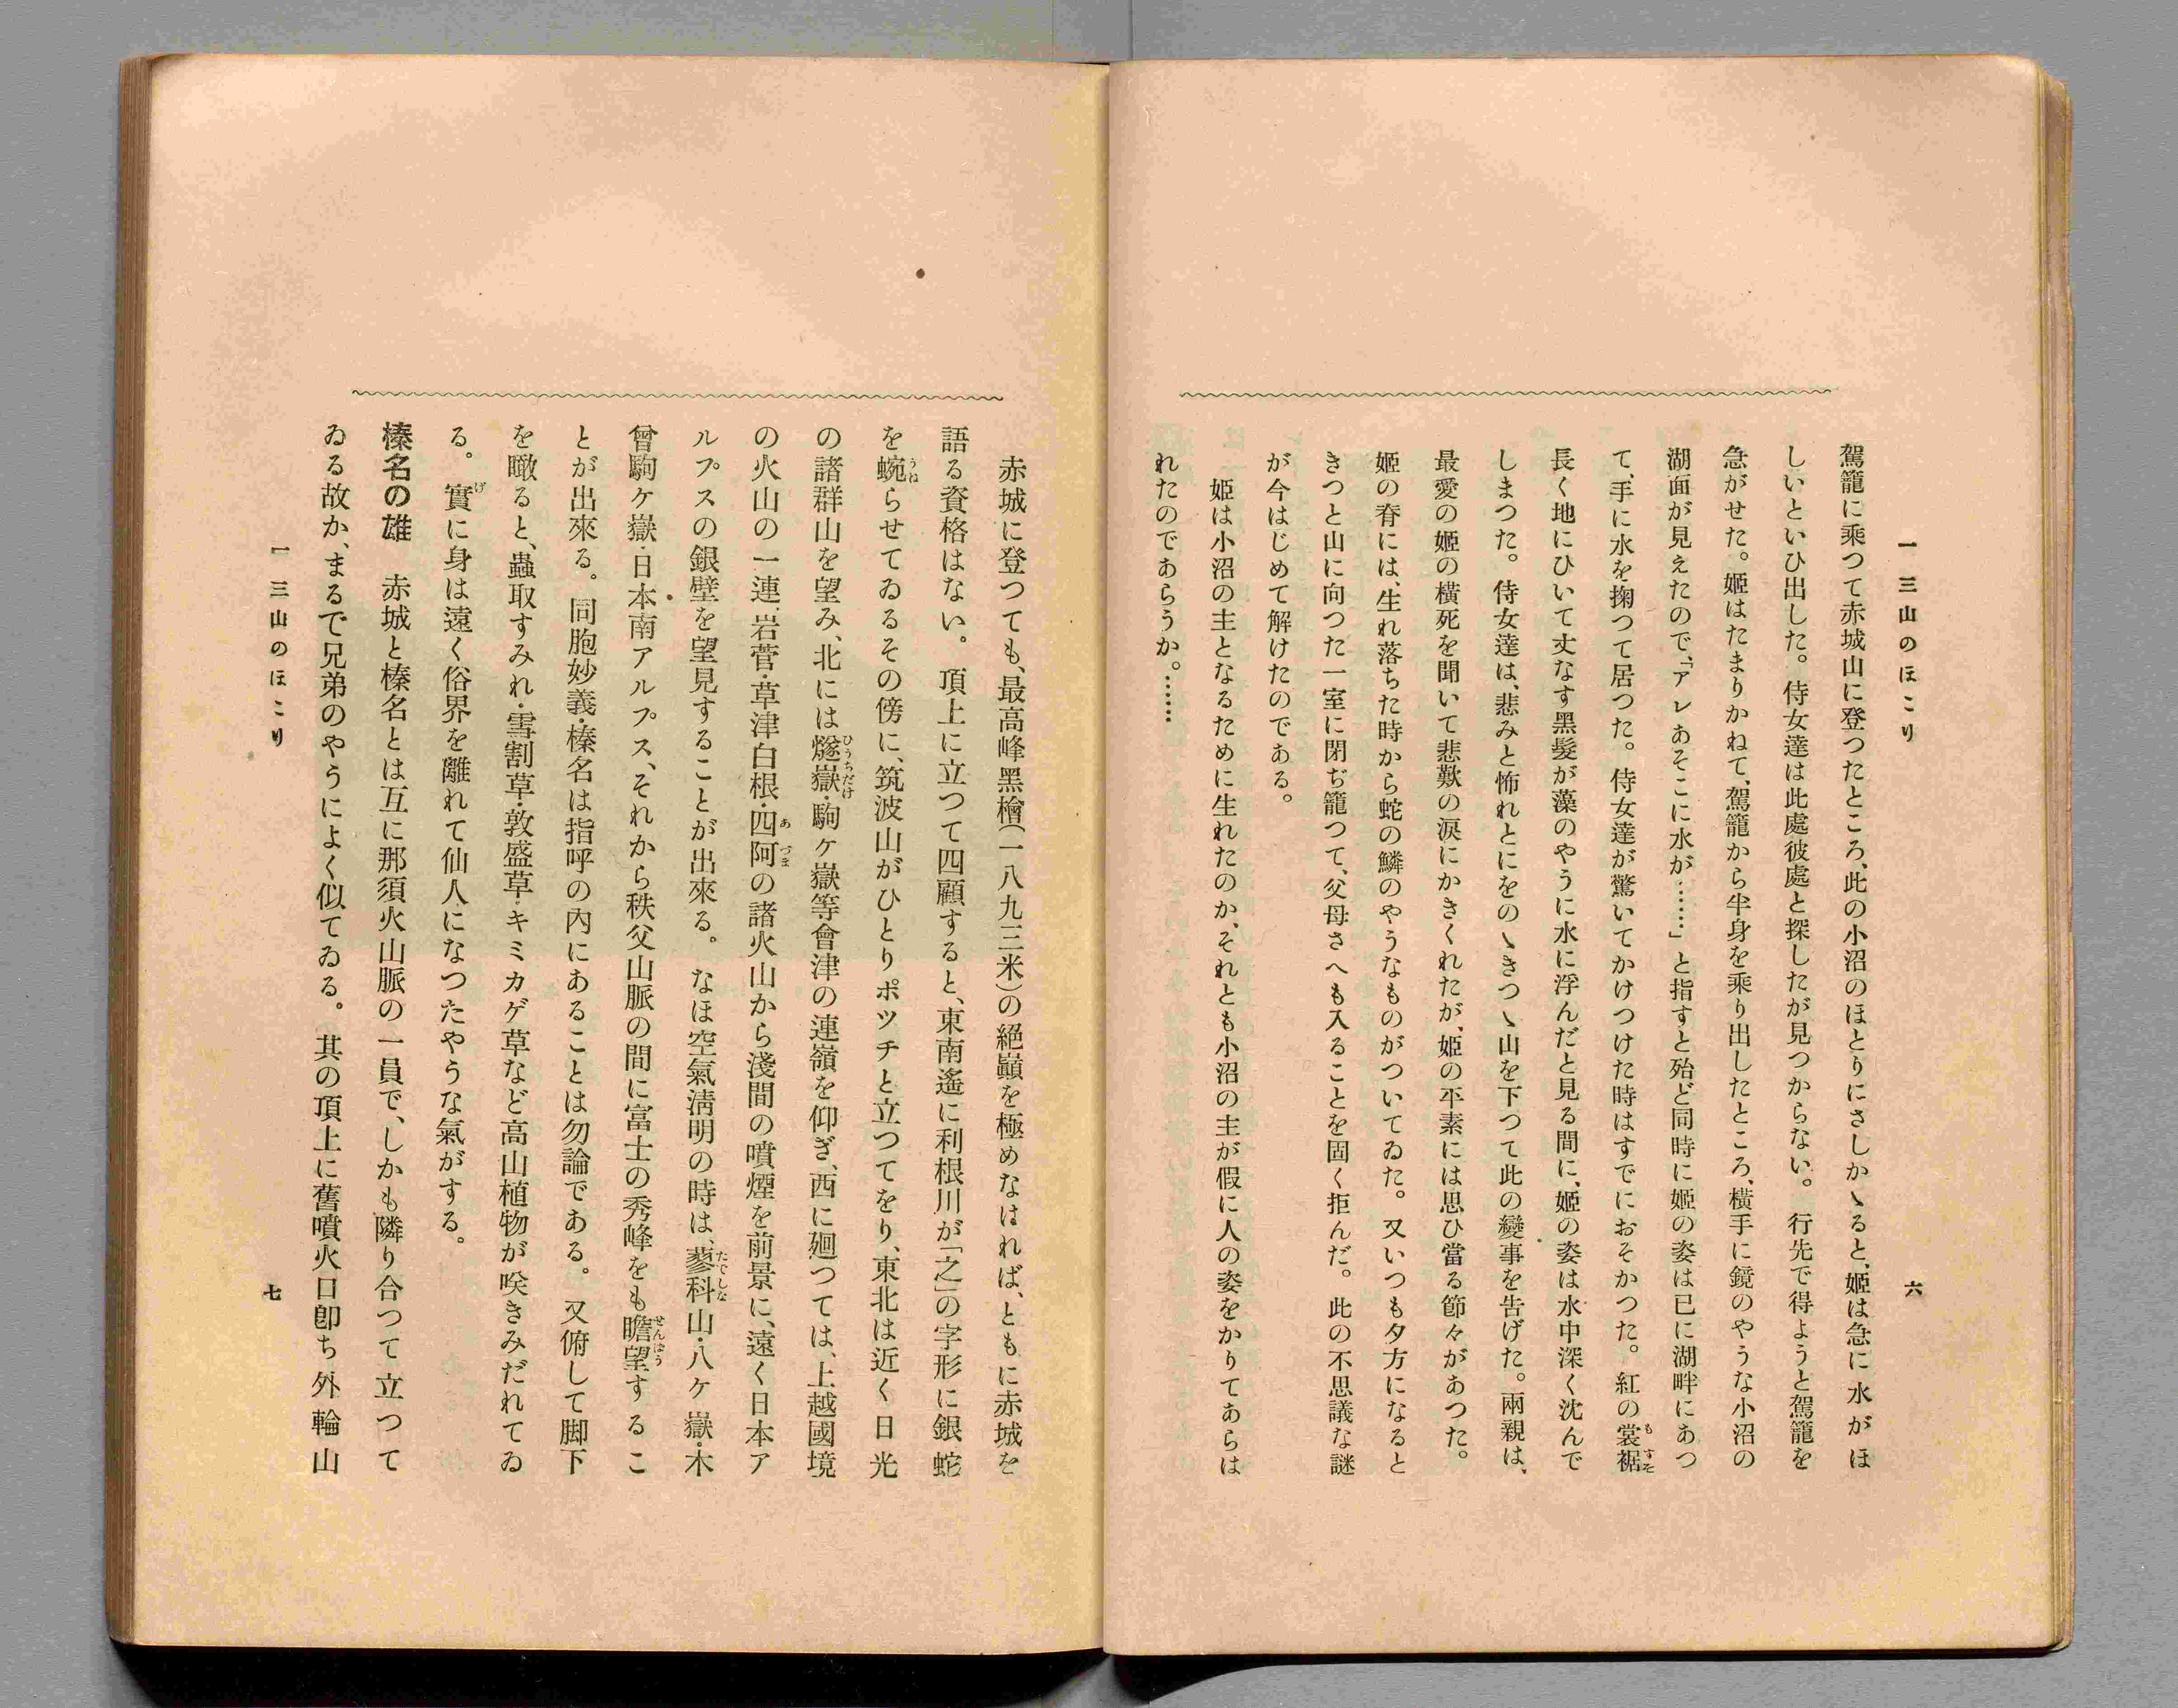 一 三山のほこり
六
駕籠に乘つて赤城山に登つたところ、此の小沼のほとりにさしかゝると、姫は急に水がほ
しいといひ出した。侍女達は此處彼處と探したが見つからない。行先で得ようと駕籠を
急がせた。姫はたまりかねて、駕籠から半身を乘り出したところ、横手に鏡のやうな小沼の
湖面が見えたので、「アレあそこに水が……」と指すと殆ど同時に姫の姿は已に湖畔にあつ
て、手に水を掬つて居つた。侍女達が驚いてかけつけた時はすでにおそかつた。紅の裳裾
長く地にひいて丈なす黑髮が藻のやうに水に浮んだと見る間に、姫の姿は水中深く沈んで
しまつた。侍女達は、悲みと怖れとにをのゝきつゝ山を下つて此の變事を告げた。兩親は、
最愛の姫の横死を聞いて悲歎の淚にかきくれたが、姫の平素には思ひ當る節々があつた。
姫の脊には、生れ落ちた時から蛇の鱗のやうなものがついてゐた。又いつも夕方になると
きつと山に向つた一室に閉ぢ籠つて、父母さへも入ることを固く拒んだ。此の不思議な謎
が今はじめて解けたのである。
姫は小沼の主となるために生れたのか、それとも小沼の主が假に人の姿をかりてあらは
れたのであらうか。……
赤城に登つても、最高峰黑檜(一八九三米)の絶巓を極めなければ、ともに赤城を
語る資格はない。頂上に立つて四顧すると、東南遙に利根川が「之」の字形に銀蛇
を蜿らせてゐるその傍に、筑波山がひとりポツチと立つてをり、東北は近く日光
の諸群山を望み、北には燧嶽・駒ヶ嶽等會津の連嶺を仰ぎ、西に廻つては、上越國境
の火山の一連、岩菅・草津白根・四阿の諸火山から淺間の噴煙を前景に、遠く日本ア
ルプスの銀壁を望見することが出來る。なほ空氣淸明の時は、蓼科山・八ヶ嶽・木
曾駒ヶ嶽・日本南アルプス、それから秩父山脈の間に富士の秀峰をも瞻望するこ
とが出來る。同胞妙義・榛名は指呼の內にあることは勿論である。又俯して脚下
を瞰ると、蟲取すみれ・雪割草・敦盛草・キミカゲ草など高山植物が咲きみだれてゐ
る。實に身は遠く俗界を離れて仙人になつたやうな氣がする。
榛名の雄 赤城と榛名とは互に那須火山脈の一員で、しかも隣り合つて立つて
ゐる故か、まるで兄弟のやうによく似てゐる。其の頂上に舊噴火口卽ち外輪山
一 三山のほこり
七